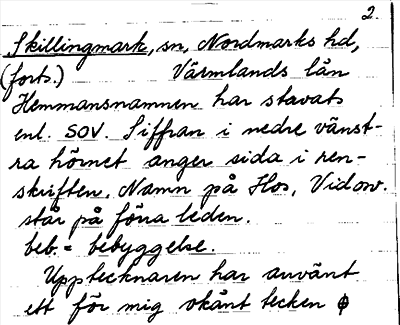 2.
Skillingmark, sn, Nordmarks hd,
(forts.) Värmlands län
Hemmansnamnen har stavats
enl. SOV. Siffran i nedre vänst-
ra hörnet anger sida i ren-
skriften. Namn på Hos, Vid osv.
står på föna leden.
beb. = bebyggelse.
Upptecknaren har använt
ett för mig okänt tecken ϕ